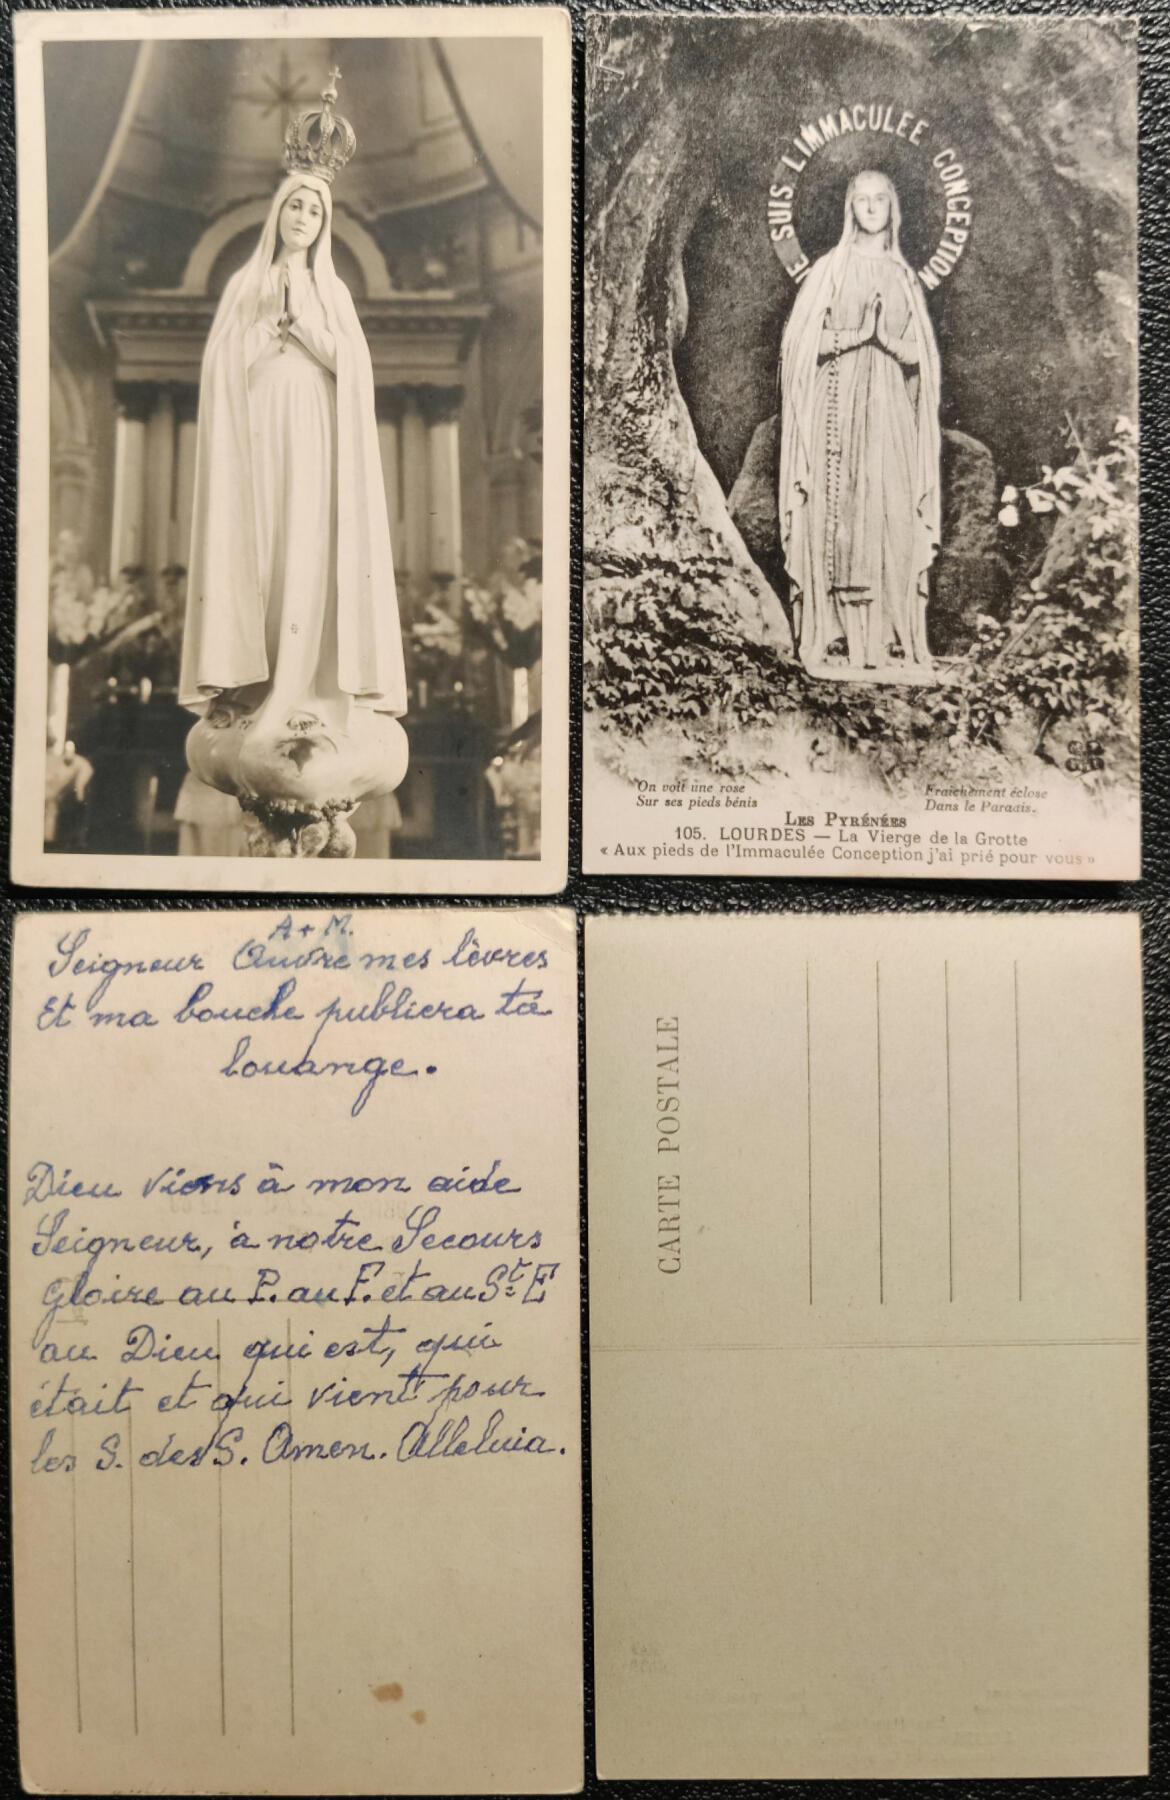 JE SUIS L'IMMACULEE CONCEPTION
On voit une rose
Sur ses pieds bénis
Fraîchement éclose
Dans le Paradis.
LES PYRÉNÉES
105. LOURDES — La Vierge de la Grotte
« Aux pieds de l'Immaculée Conception j'ai prié pour vous »
A + M.
Seigneur Ouvre mes lèvres
Et ma bouche publiera ta
louange.
Dieu viens à mon aide
Seigneur, à notre Secours
gloire au P. au F. et au St E
au Dieu qui est, qui
était et qui vient pour
les S. des S. Amen. Alleluia.
CARTE POSTALE